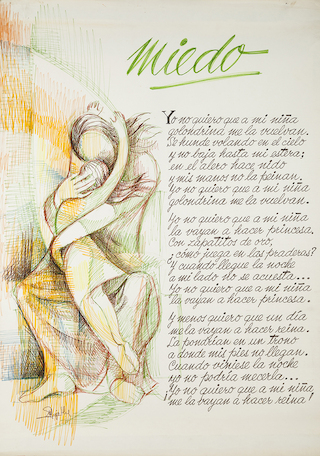 Miedo
Yo no quiero que a mi niña
golondrina me la vuelvan.
Se hunde volando en el cielo
y no baja hasta mi estera;
en el alero hace nido
y mis manos no la peinan.
Yo no quiero que a mi niña
golondrina me la vuelvan.
Yo no quiero que a mi niña
la vayan a hacer princesa.
Con zapatitos de oro,
¿cómo juega en las praderas?
Y cuando llegue la noche
a mi lado no se acuesta...
Yo no quiero que a mi niña
la vayan a hacer princesa.
Y menos quiero que un día
me la vayan a hacer reina.
La pondrían en un trono
a donde mis pies no llegan.
Cuando viniese la noche
yo no podría mecerla...
¡Yo no quiero que a mi niña
me la vayan a hacer reina!